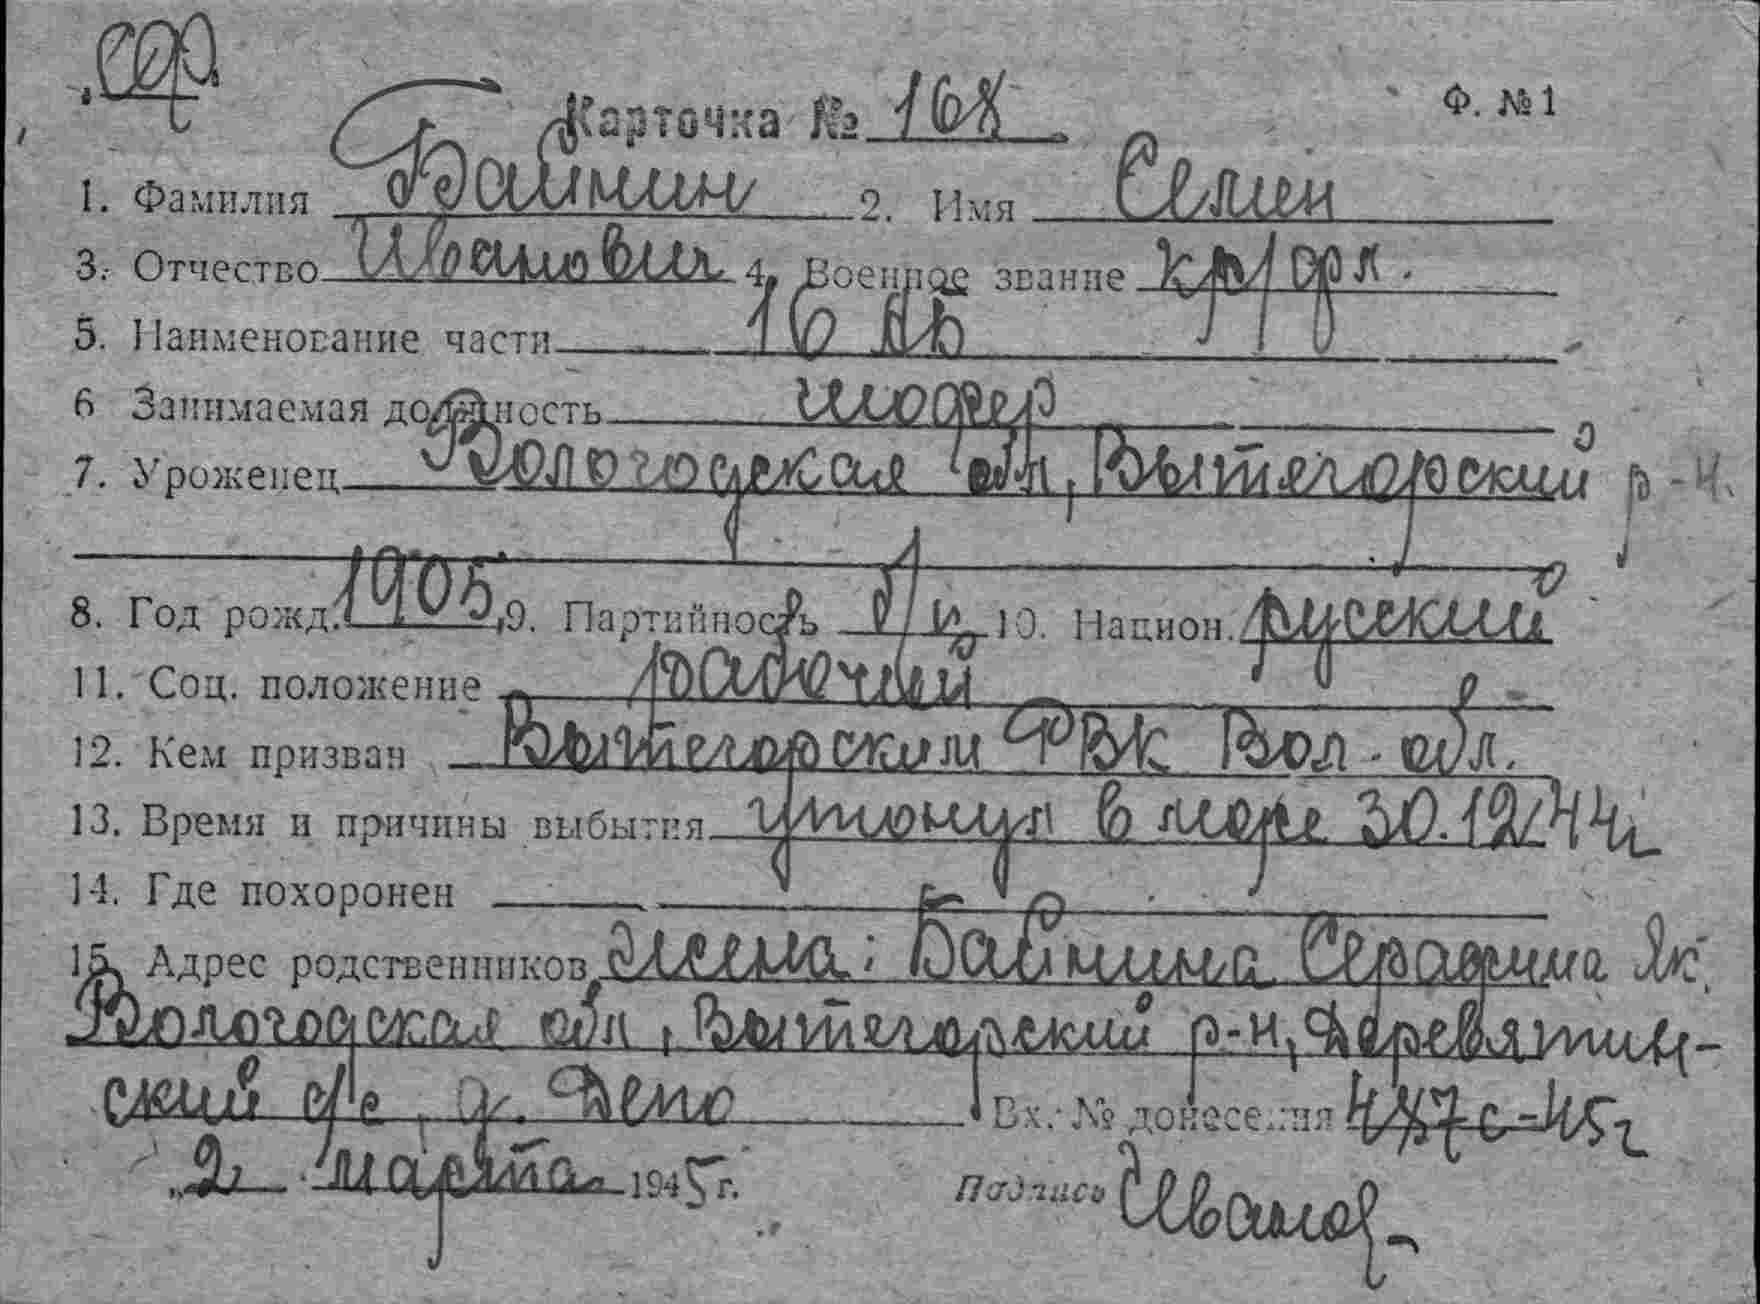 Карточка № 168 Ф. № 1
1. Фамилия Байнин 2. Имя Семен
3. Отчество Иванович 4. Военное звание кр/фл.
5. Наименование части 16
6 Занимаемая должность шофер
7. Уроженец Вологодская обл, Вытегорский р-н.
8. Год рожд. 1905 9. Партийность б/п 10. Национ. русский
11. Соц. положение рабочий
12. Кем призван Вытегорским РВК Вол. обл.
13. Время и причины выбытия утонул в море 30.12.44г
14. Где похоронен
15. Адрес родственников жена: Байнина Серафима Як.
Вологодская обл, Вытегорский р-н, Девятин-
ский с/с, д. Депо Вх. № донесения 487с-45г
"2" марта 1945 г. Подпись Иванов